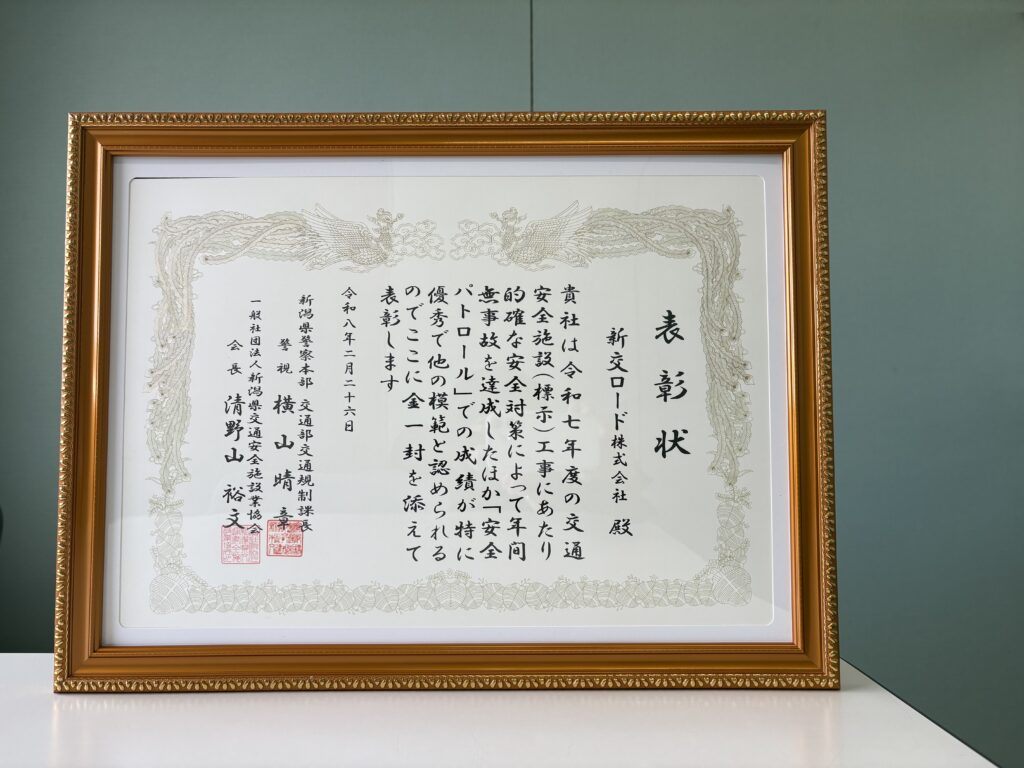 表彰状
新交ロード株式会社 殿
貴社は令和七年度の交通
安全施設(標示)工事にあたり
的確な安全対策によって年间
無事故を達成したほか「安全
パトロール」での成績が特に
優秀で他の模範と認められる
のでここに金一封を添えて
表彰します
令和八年二月二十六日
新潟県警察本部 交通部交通規制課長
警視 横山晴章
一般社団法人新潟県交通安全施設業協会
会長 清野山裕文